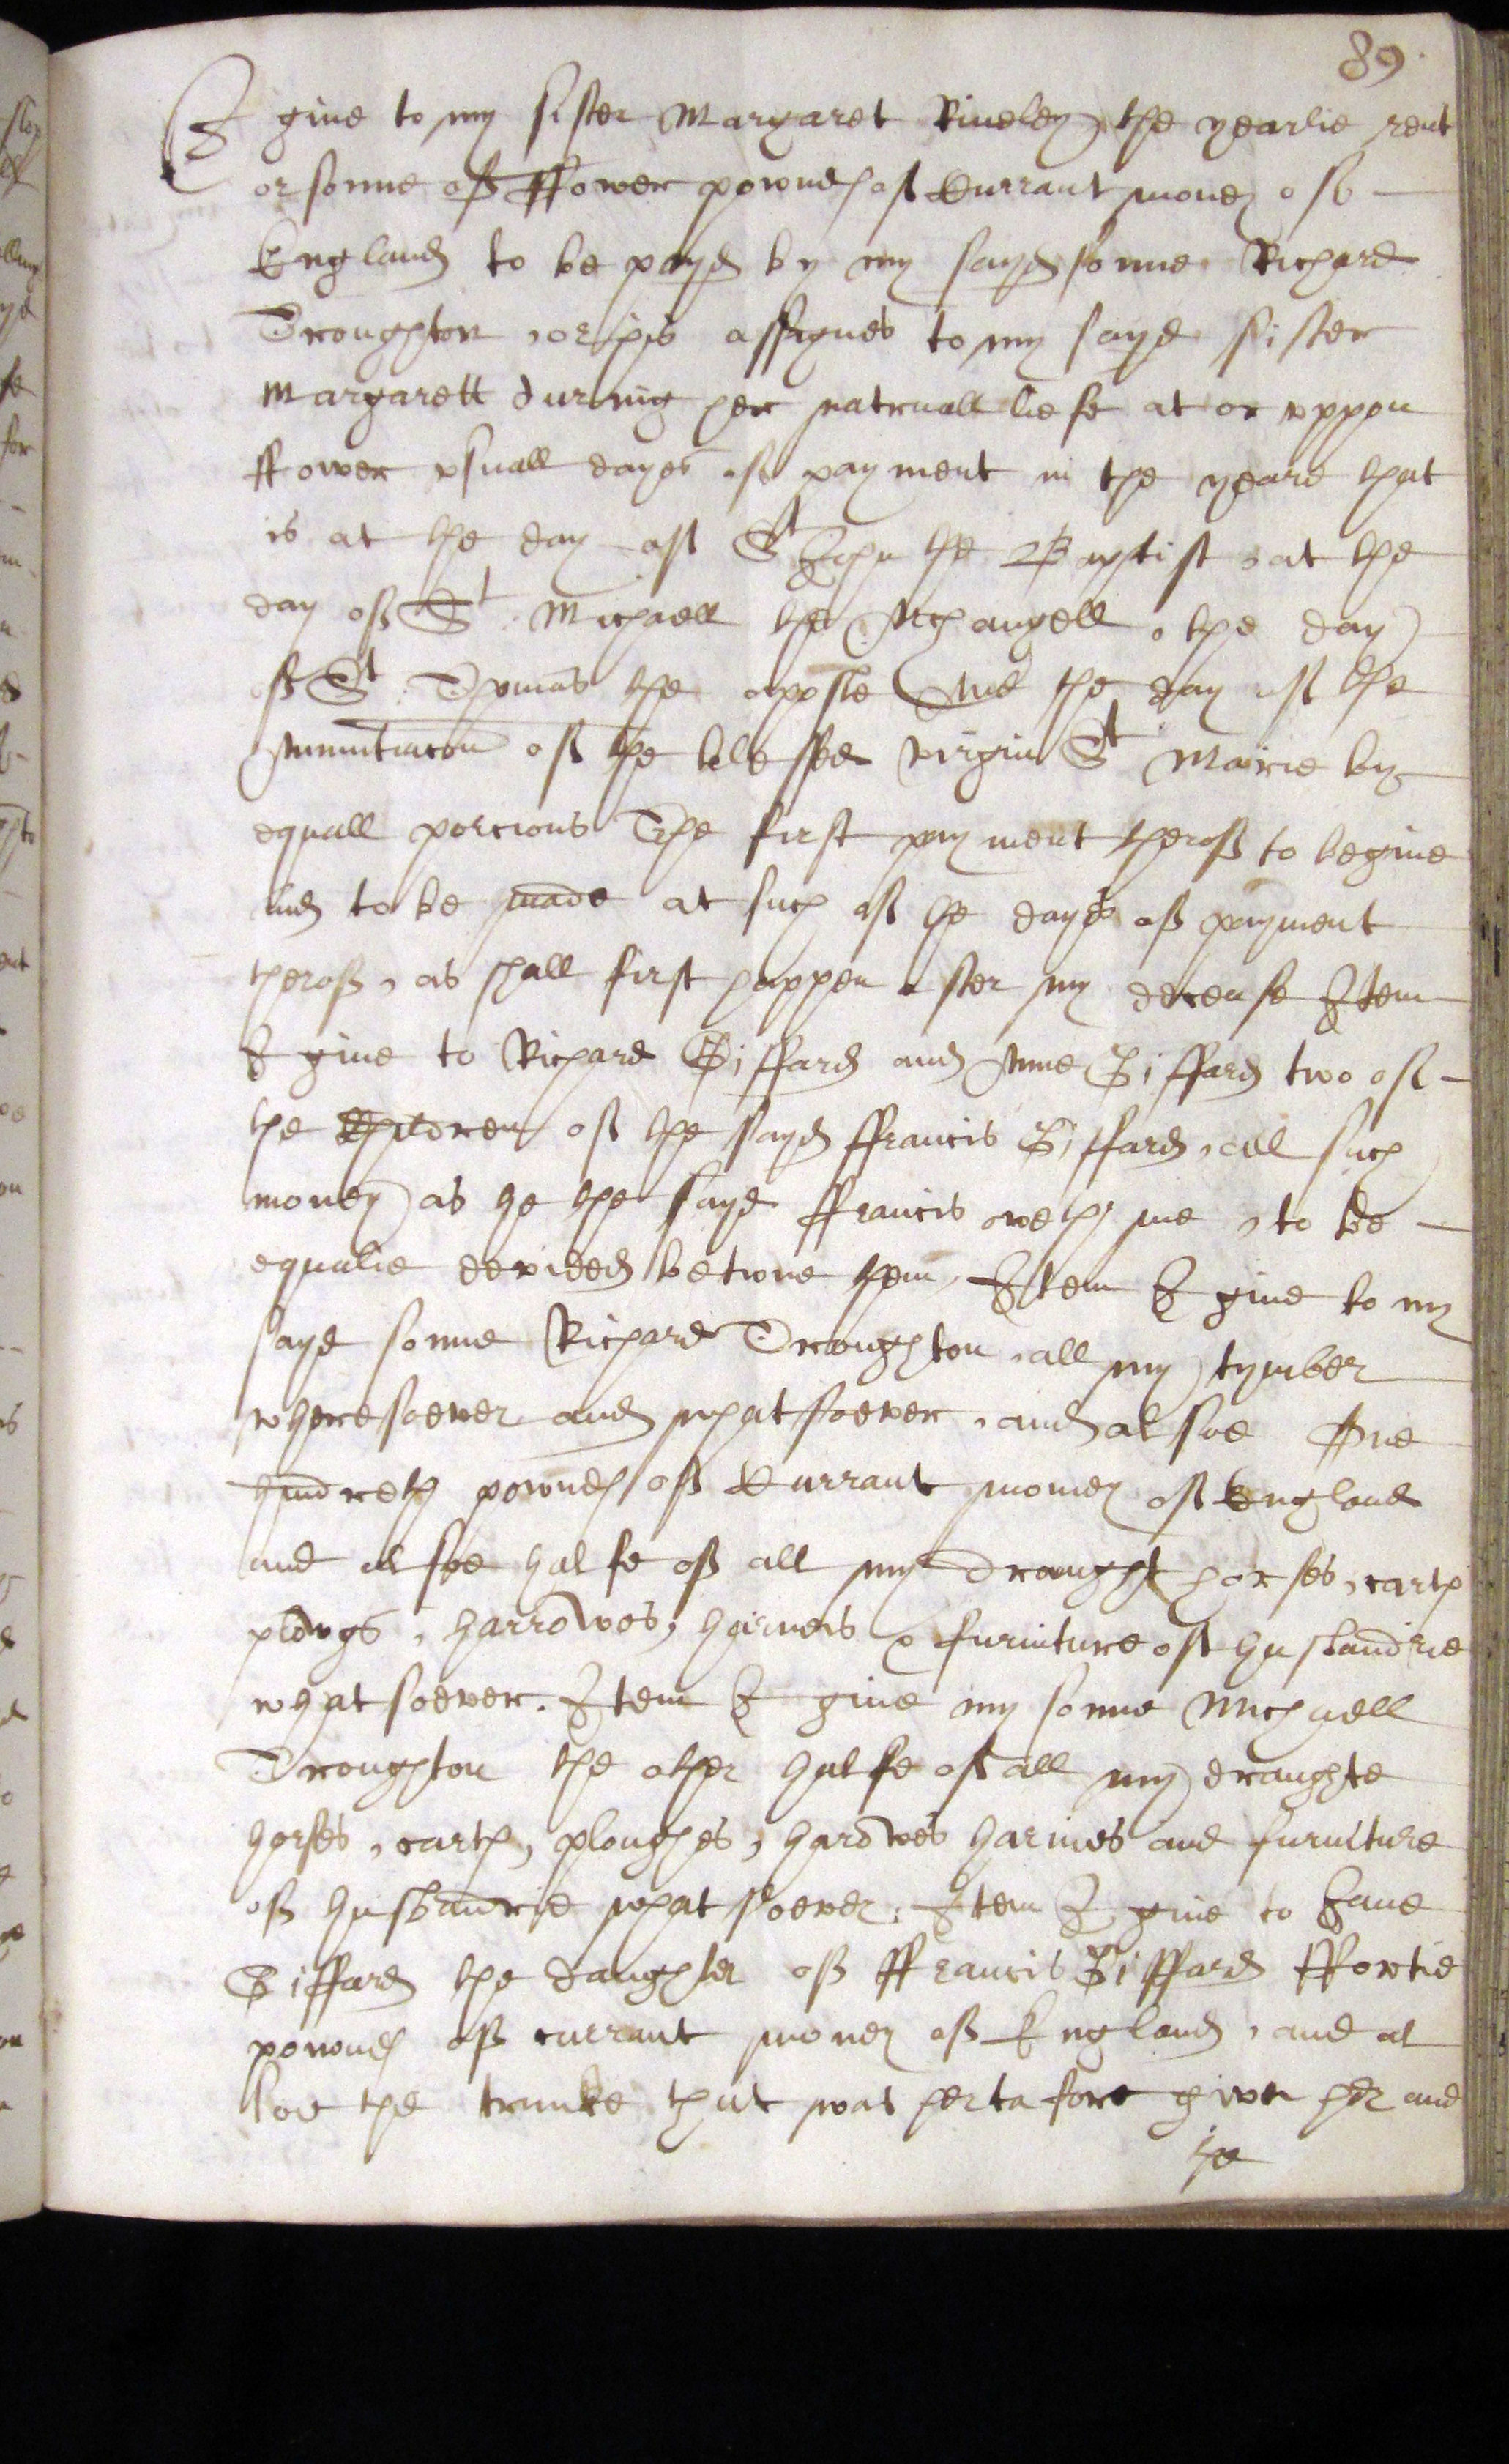 89
I give to my sister Margaret Kineley, the yearlie rent
or somme of ffower powndes of Currant money of
England to be payd by my sayd sonne Richard
Troughton, or his assignes to my sayd sister
Margarett during her naturall liefe at or uppon
ffower usuall dayes of payment in the yeare that
is at the day of St John the Baptist, at the
day of St Michaell the Archangell, the day
of St Thomas the apostle And the day of the
Annuntiacon of the blessed virgin St Marie by
equall porcions The first payment therof to begine
and to be made at such of the dayes of payment
therof, as shall first happen after my decease Item
I give to Richard Giffard and Anne Giffard two of
the Children of the sayd ffrancis Giffard, all such
money as he the sayd ffrancis oweth me, to be
equalie devided betwne them, Item I give to my
sayd sonne Richard Troughton, all my tymber
wheresoever and whatsoever, and alsoe One
hundreth powndes of Currant money of England
and alsoe halfe of all my draught horses, carts
plowgs, harrowes, harneis & furniture of husbandrie
whatsoever. Item I give my sonne Michaell
Troughton the other halfe of all my draughte
horses, carts, ploughes, harowes harnies and furniture
of husbandrie whatsoever. Item I give to Jane
Giffard the daughter of ffrancis Giffard ffortie
powndes of currant money of England, and al
soe the trunke that was hertafore given her and
the